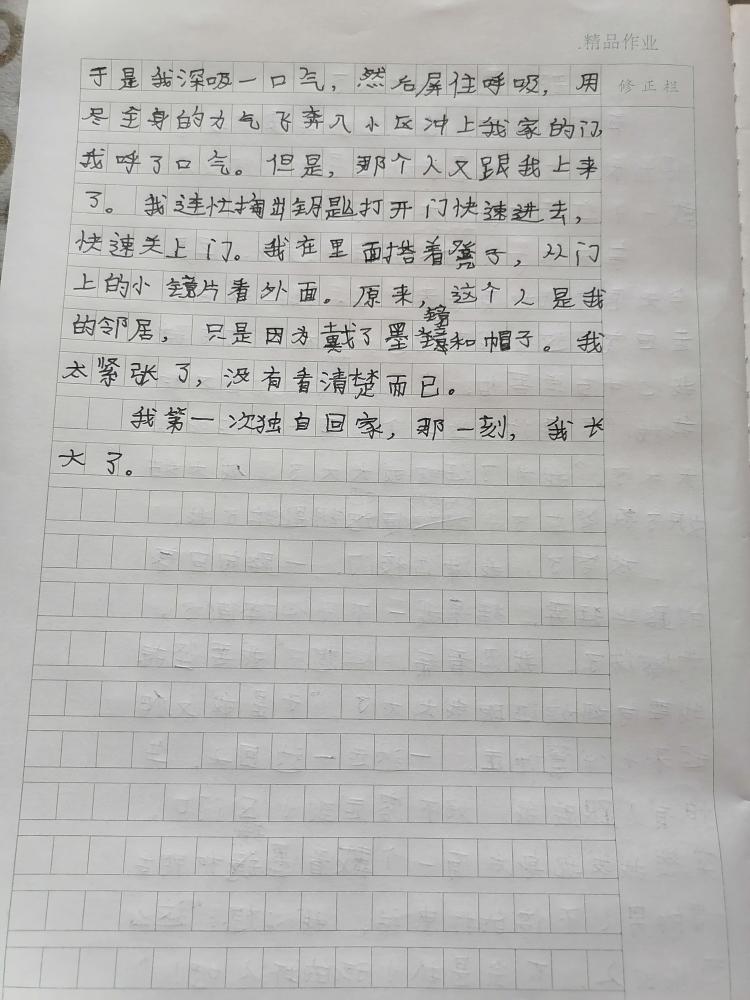 精品作业
修正栏
于是我深吸一口气，然后屏住呼吸，用
尽全身的力气飞奔入小区冲上我家的门，
我呼了口气。但是，那个人又跟我上来
了。我连忙掏出钥匙打开门快速进去，
快速关上门。我在里面搭着凳子，从门
上的小镜片看外面。原来，这个人是我
的邻居，只是因为戴了墨镜和帽子。我
太紧张了，没有看清楚而已。
我第一次独自回家，那一刻，我长
大了。